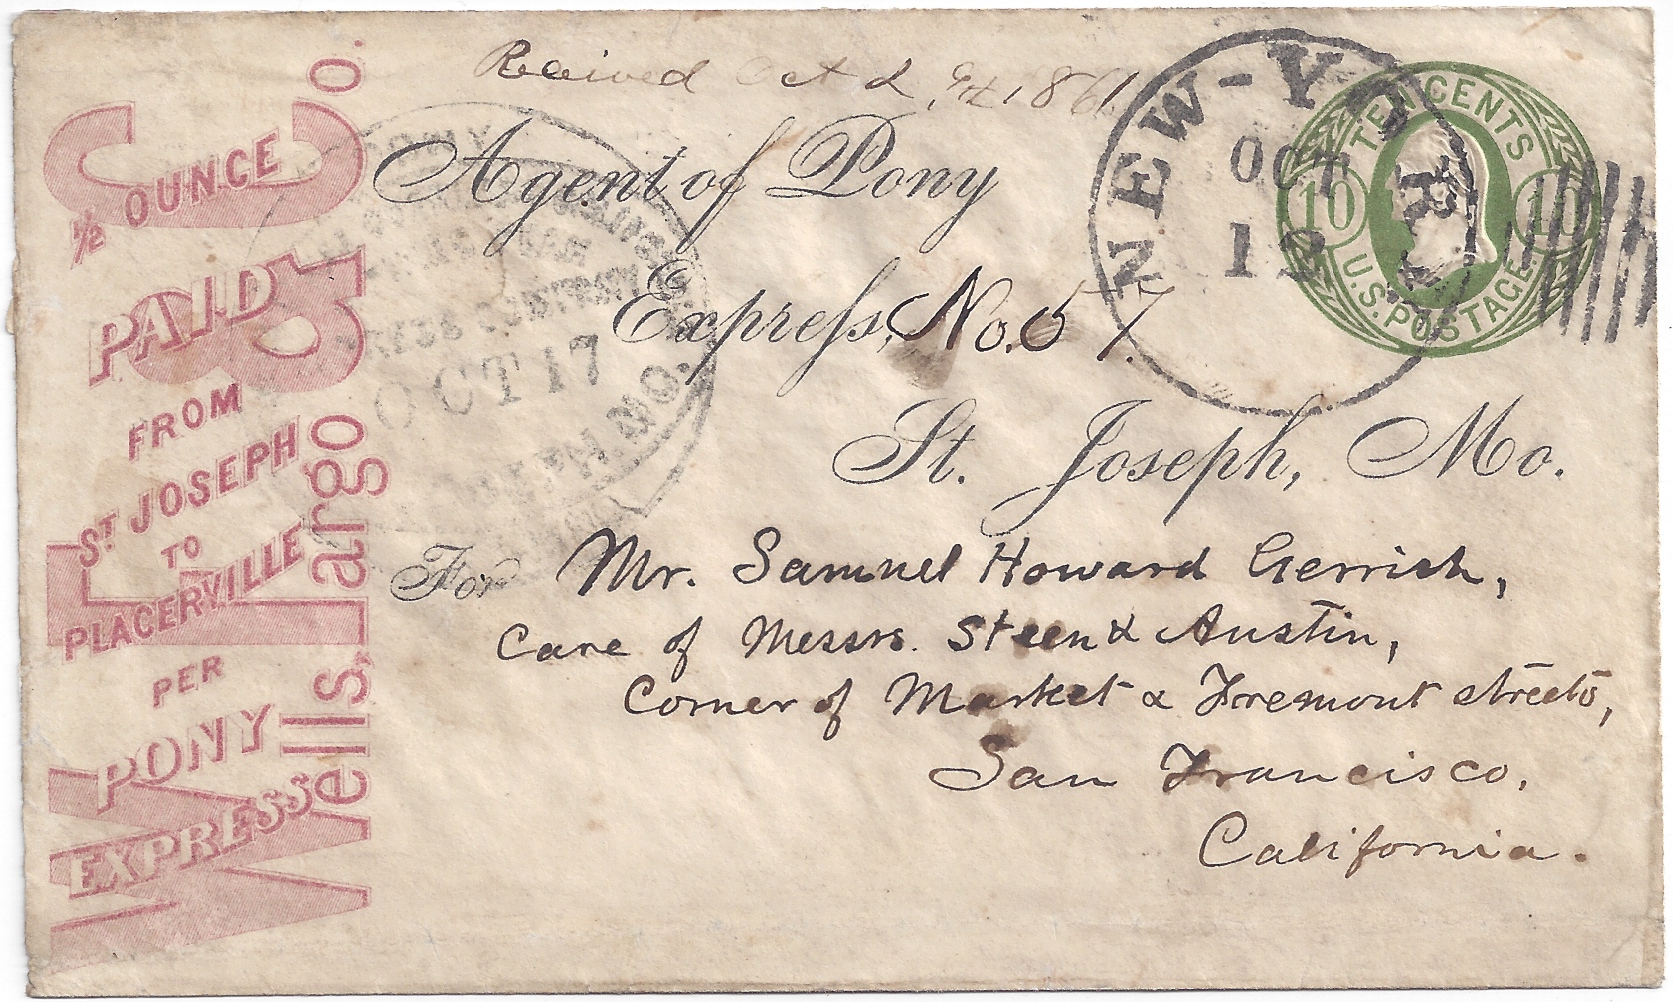 Received Oct 1861.
Agent of Pony
Express, No. 57.
St. Joseph, Mo.
For Mr. Samuel Howard Gerrish,
Care of Messrs. Steen & Austin,
Corner of Market & Fremont streets,
San Francisco.
California.
NEW-YORK
OCT
12
TEN CENTS
10 10
U.S. POSTAGE
OCT 17
Wells, Fargo & Co.
½ OUNCE
PAID
FROM
ST JOSEPH
TO
PLACERVILLE
PER
PONY
EXPRESS